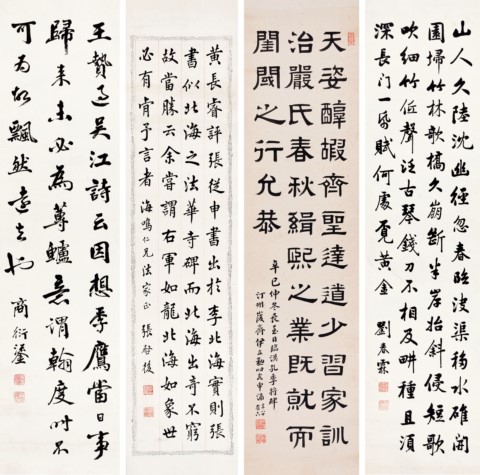 山人久陸沈幽徑忽春臨決渠移水碓開
園埽竹林欹橋久崩斷半岸始斜侵短歌
吹細竹低聲泛古琴錢刀不相及畊種且須
深長门一紙賦何處覓黃金 劉春霖
天姿醇嘏齊聖達道少習家訓
治嚴氏春秋緝熙之業既就而
閨閾之行允恭
辛巳仲冬長至日臨漢孔季將碑
汀州峻齋伊立勳
黃長睿評張從申書出於李北海實則張
書似北海之法華寺碑而北海出奇不窮
故當勝云余嘗謂右軍如龍北海如象世
必有肯予言者 海鳴仁兄法家正 張啓後
王贄過吳江詩云因想季鷹當日事
歸來未必為蓴鱸意謂翰度時不
可為故飄然遠去也 商衍鎏